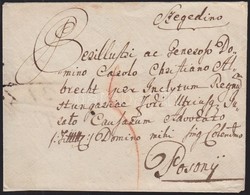 Szegedino
Perillustri ac Generoso Do-
mino Carolo Christiano Al-
brecht per Inclytum Regnum
Hungariae Fori Utriusq
rato Causarum Advocato
Domino mihi Colendiss
Posonij